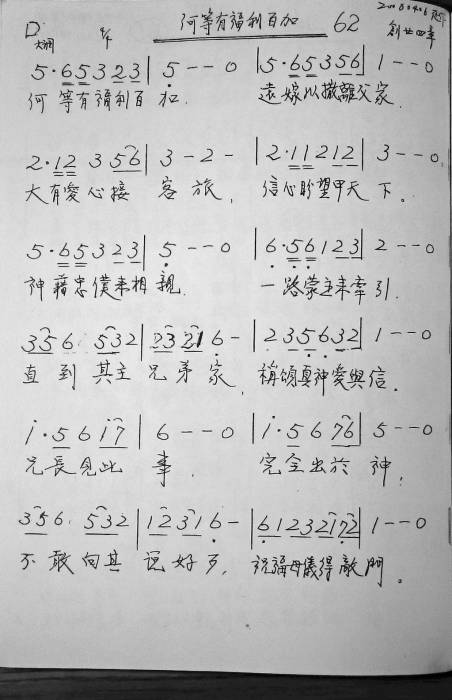 何等有福利百加 62
D 大調 4/4 創廿四章
5·65323|5--0 |5·65356|1--0
何等有福利百加. 遠嫁以撒離父家.
2·12 3 56|3-2- |2·11212|3--0
大有愛心接客旅, 信心盼望甲天下。
5·65323|5--0 |6·56123|2--0
神藉忠僕来相親. 一路蒙主来牽引.
356 532|23 216- |235632|1--0
直到其主兄弟家, 稱頌真神愛與信。
1·5617|6--0 |1·5676|5--0
兄長見此事, 完全出於神,
356 532|12 316- |6123 2172|1--0
不敢向其说好歹, 祝福母儀得敵門。